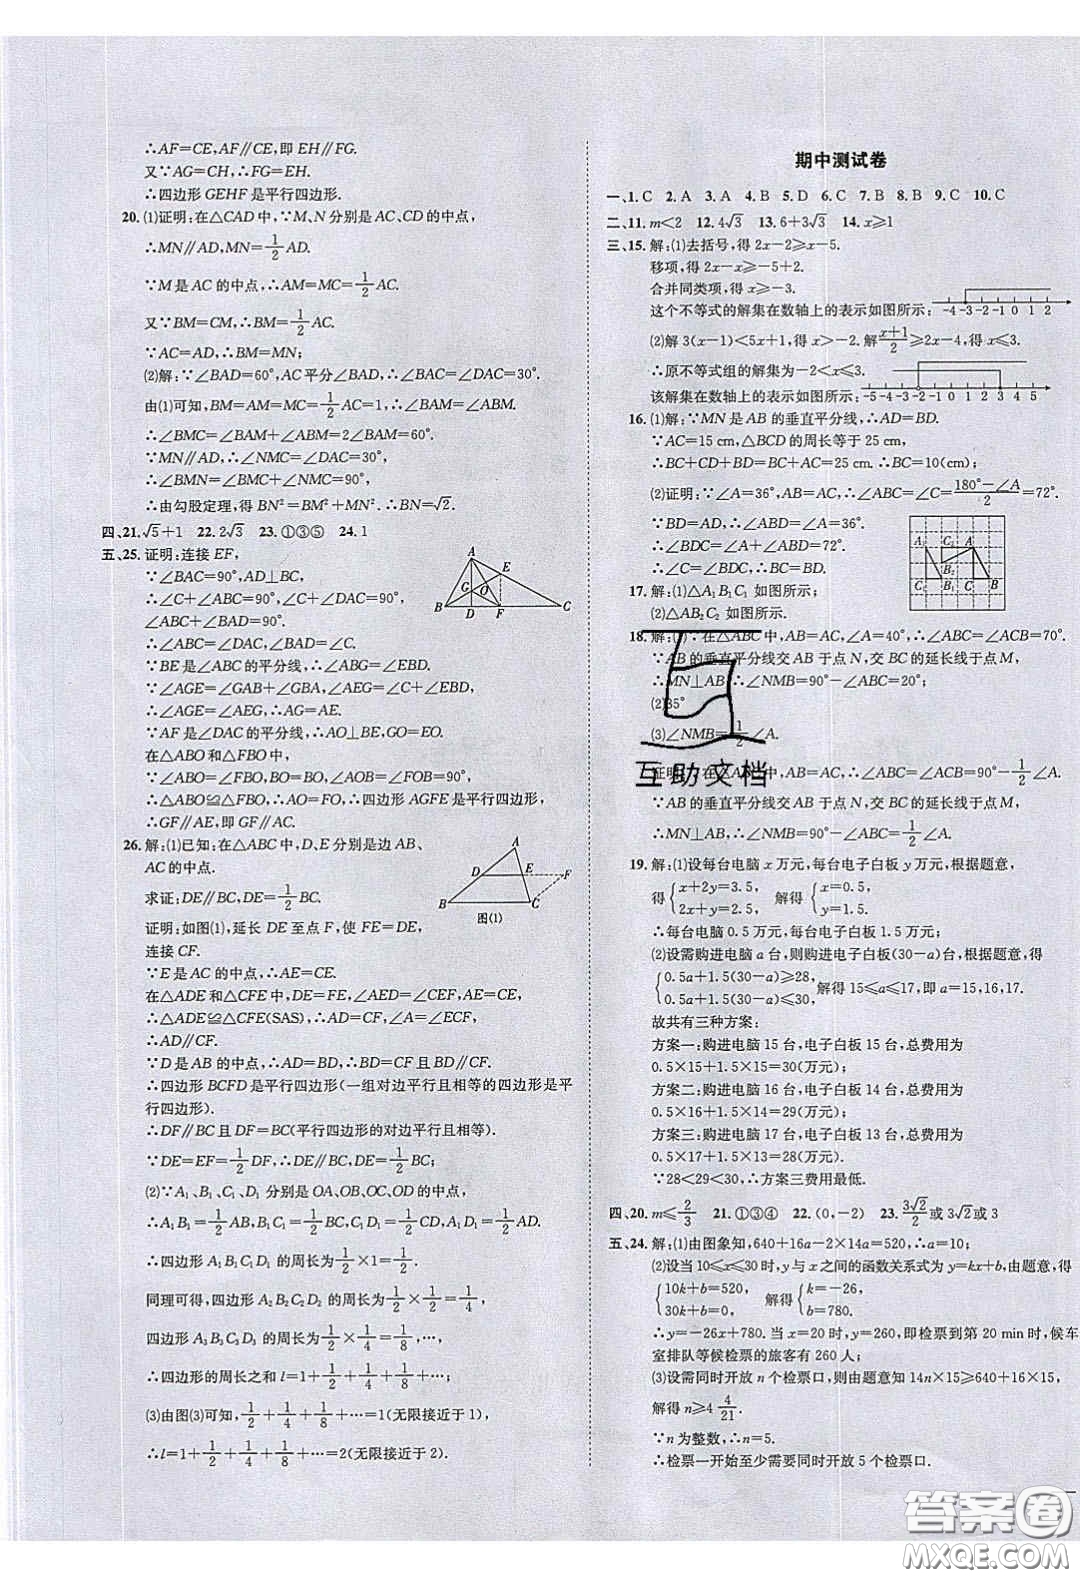 ∴AF=CE,AF∥CE,即 EH∥FG.
又∵AG=CH,∴FG=EH.
∴四边形 GEHF 是平行四边形.
20. (1)证明:在△CAD 中,∵M、N 分别是 AC、CD 的中点,
∴MN∥AD,MN=1/2 AD.
∵M 是 AC 的中点,∴AM=1/2 AC.
又∵BM=CM,∴BM=1/2 AC.
∵AC=AD,∴BM=MN;
(2)解:∵∠BAD=60°,AC 平分∠BAD,∴∠BAC=∠DAC=30°.
由(1)可知,BM=AM=MC=1/2 AC,∴∠BAM=∠ABM.
∴∠BMC=∠BAM+∠ABM=2∠BAM=60°.
∵MN∥AD,∴∠NMC=∠DAC=30°.
∴∠BMN=∠BMC+∠NMC=90°.
∴由勾股定理,得 BN²=BM²+MN².∴BN=√2.
四、21. √5+1 22. 2√3 23. ①③⑤ 24. 1
五、25. 证明:连接 EF,
∵∠BAC=90°,AD⊥BC,
∴∠C+∠ABC=90°,∠C+∠DAC=90°,
∠ABC+∠BAD=90°.
∴∠ABC=∠DAC,∠BAD=∠C.
∵BE 是∠ABC 的平分线,∴∠ABG=∠EBD.
∵∠AGE=∠GAB+∠GBA,∠AEG=∠C+∠EBD,
∴∠AGE=∠AEG,∴AG=AE.
∵AF 是∠DAC 的平分线,∴AO⊥BE,GO=EO.
在△ABO 和△FBO 中,
∵∠ABO=∠FBO,BO=BO,∠AOB=∠FOB=90°,
∴△ABO≌△FBO,∴AO=FO,∴四边形 AGFE 是平行四边形,
∴GF∥AE,即 GF∥AC.
A
E
G
O
B
D
F
C
26. 解:(1)已知:在△ABC 中,D、E 分别是边 AB、
AC 的中点.
求证:DE∥BC,DE=1/2 BC.
证明:如图(1),延长 DE 至点 F,使 FE=DE,
连接 CF.
∵E 是 AC 的中点,∴AE=CE.
在△ADE 和△CFE 中,DE=FE,∠AED=∠CEF,AE=CE,
∴△ADE≌△CFE(SAS),∴AD=CF,∠A=∠ECF,
∴AD∥CF.
∵D 是 AB 的中点,∴AD=BD,∴BD=CF 且 BD∥CF.
∴四边形 BCFD 是平行四边形(一组对边平行且相等的四边形是平
行四边形).
∴DF∥BC 且 DF=BC(平行四边形的对边平行且相等).
∵DE=EF=1/2 DF,∴DE∥BC,DE=1/2 BC;
(2)∵A₁、B₁、C₁、D₁ 分别是 OA、OB、OC、OD 的中点,
∴A₁B₁=1/2 AB,B₁C₁=1/2 BC,C₁D₁=1/2 CD,A₁D₁=1/2 AD.
∴四边形 A₁B₁C₁D₁ 的周长为 1/2×1=1/2.
同理可得,四边形 A₂B₂C₂D₂ 的周长为 1/2×1/2=1/4,
四边形 A₃B₃C₃D₃ 的周长为 1/2×1/4=1/8,…,
∴四边形的周长之和 l=1+1/2+1/4+1/8+…;
(3)由图(3)可知,1/2+1/4+1/8+…=1(无限接近于 1),
∴l=1+1/2+1/4+1/8+…=2(无限接近于 2).
A
D
E
F
B
C
图(1)
期中测试卷
一、1. C 2. A 3. A 4. B 5. D 6. C 7. B 8. B 9. C 10. C
二、11. m<2 12. 4√3 13. 6+3√3 14. x≥1
三、15. 解:(1)去括号,得 2x-2≥x-5.
移项,得 2x-x≥-5+2.
合并同类项,得 x≥-3.
这个不等式的解集在数轴上的表示如图所示:
-4 -3 -2 -1 0 1 2
(2)解 3(x-1)<5x+1,得 x>-2.解 (x+1)/2≥2x-4,得 x≤3.
∴原不等式组的解集为-2<x≤3.
该解集在数轴上的表示如图所示:
-5 -4 -3 -2 -1 0 1 2 3 4 5
16. (1)解:∵MN 是 AB 的垂直平分线,∴AD=BD.
∵AC=15 cm,△BCD 的周长等于 25 cm,
∴BC+CD+BD=BC+AC=25,∴BC=10(cm);
(2)证明:∵∠A=36°,AB=AC,∴∠ABC=∠C=(180°-∠A)/2=72°.
∵BD=AD,∴∠ABD=∠A=36°.
∴∠BDC=∠A+∠ABD=72°.
∴∠C=∠BDC,∴BC=BD,∴△BCD 是等腰三角形.
17. 解:(1)△A₁B₁C₁ 如图所示;
(2)△AB₂C₂ 如图所示.
A₁
C₂
A
B₂
C₁
B₁
C
B
18. 解:(1)∵在△ABC 中,AB=AC,∠A=40°,∴∠ABC=∠ACB=70°.
∵AB 的垂直平分线交 AB 于点 N,交 BC 的延长线于点 M,
∴MN⊥AB,∴∠NMB=90°-∠ABC=20°;
(2)35°
(3)∠NMB=1/2 ∠A.
证明:∵在△ABC 中,AB=AC,∴∠ABC=∠ACB=90°-1/2 ∠A.
∵AB 的垂直平分线交 AB 于点 N,交 BC 的延长线于点 M,
∴MN⊥AB,∴∠NMB=90°-∠ABC=1/2 ∠A.
互助文档
19. 解:(1)设每台电脑 x 万元,每台电子白板 y 万元,根据题意,
得{x+2y=3.5, 2x+y=2.5, 解得{x=0.5, y=1.5.
∴每台电脑 0.5 万元,每台电子白板 1.5 万元;
(2)设需购进电脑 a 台,则购进电子白板(30-a)台,根据题意,得
{0.5a+1.5(30-a)≥28, 0.5a+1.5(30-a)≤30, 解得 15≤a≤17,即 a=15,16,17.
故共有三种方案:
方案一:购进电脑 15 台,电子白板 15 台,总费用为
0.5×15+1.5×15=30(万元);
方案二:购进电脑 16 台,电子白板 14 台,总费用为
0.5×16+1.5×14=29(万元);
方案三:购进电脑 17 台,电子白板 13 台,总费用为
0.5×17+1.5×13=28(万元).
∵28<29<30,∴方案三费用最低.
四、20. m≤2/3 21. ①③④ 22. (0,-2) 23. 3√2/2或 3√2或 3
五、24. 解:(1)由图象知,640+16a-2×14a=520,∴a=10;
(2)设当 10≤x≤30 时,y 与 x 之间的函数关系式为 y=kx+b,由题意,得
{10k+b=520, 30k+b=0, 解得{k=-26, b=780.
∴y=-26x+780.当 x=20 时,y=260,即检票到第 20 min 时,候车
室排队等候检票的旅客有 260 人;
(3)设需同时开放 n 个检票口,则由题意知 14n×15≥640+16×15,
解得 n≥4 4/21.
∵n 为整数,∴n=5.
∴检票一开始至少需要同时开放 5 个检票口.
答案圈
MXQE.COM